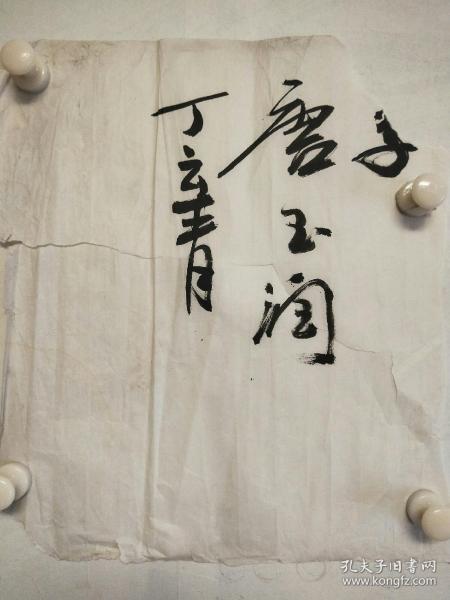 唐玉润
丁云青
孔夫子旧书网
www.kongfz.com